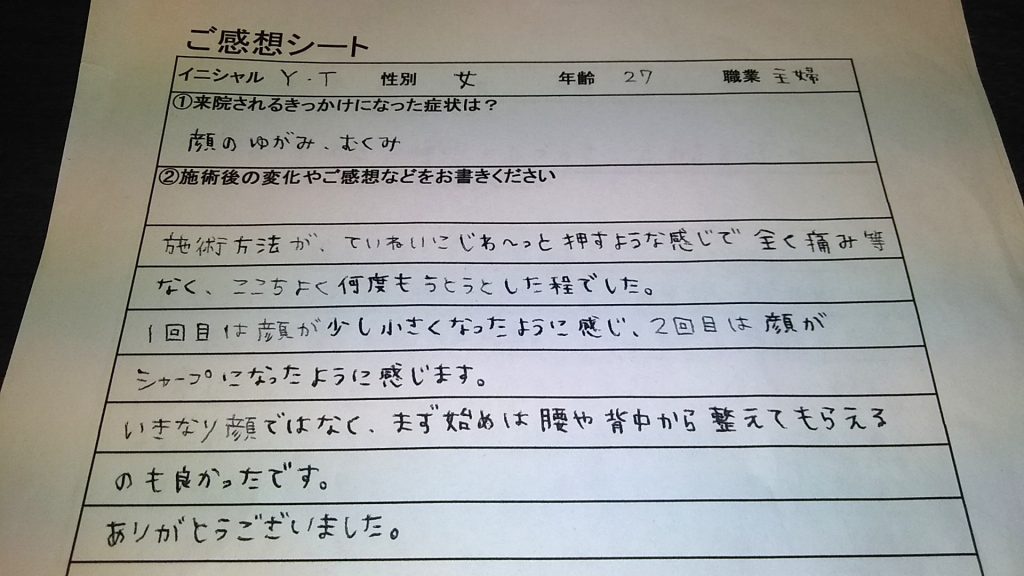 ご感想シート
イニシャル Y.T 性別 女 年齢 27 職業 主婦
①来院されるきっかけになった症状は？
顔のゆがみ、むくみ
②施術後の変化やご感想などをお書きください
施術方法が、ていねいにじわ〜っと押すような感じで全く痛み等
なく、ここちよく何度もうとうとした程でした。
1回目は顔が少し小さくなったように感じ、2回目は顔が
シャープになったように感じます。
いきなり顔ではなく、まず始めは腰や背中から整えてもらえる
のも良かったです。
ありがとうございました。